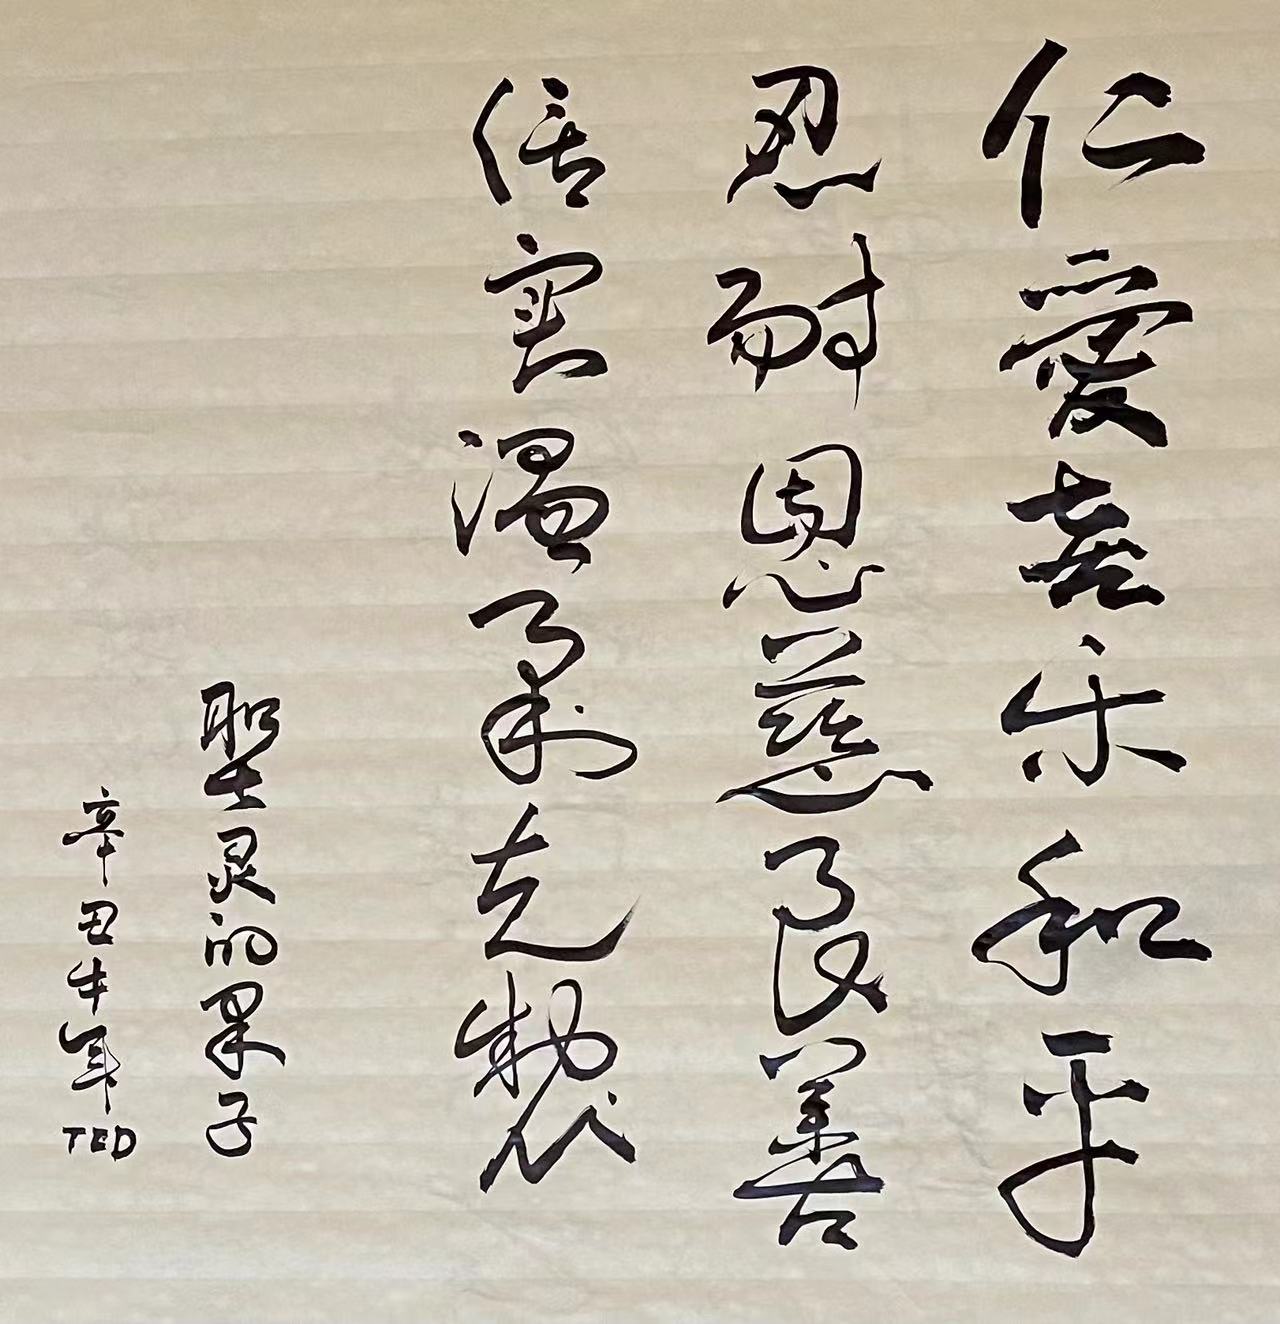 仁愛喜乐和平
忍耐恩慈良善
信实温柔克制
聖灵的果子
辛丑牛年
TED